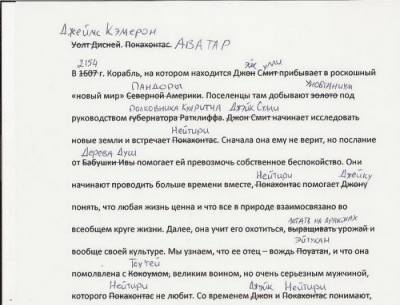 Джеймс Кэмерон
Уолт Дисней. Покахонтас. АВАТАР
2154 эйк улли
В 1607 г. Корабль, на котором находится Джон Смит прибывает в роскошный
ПАНДОРЫ
«новый мир» Северной Америки. Поселенцы там добывают золото под
полковника Джэйк Сулли
руководством губернатора Ратклиффа. Джон Смит начинает исследовать
Нейтири
новые земли и встречает Покахонтас. Сначала она ему не верит, но послание
Дерева Душ
от Бабушки Ивы помогает ей превозмочь собственное беспокойство. Они
Нейтири Джейку
начинают проводить больше времени вместе, Покахонтас помогает Джону
понять, что любая жизнь ценна и что все в природе взаимосвязано во
летать на драконах
всеобщем круге жизни. Далее, она учит его охотиться, выращивать урожай и
Эйтукан
вообще своей культуре. Мы узнаем, что ее отец – вождь Поуатан, и что она
Тсу'тей
помолвлена с Кокоумом, великим воином, но очень серьезным мужчиной,
Нейтири Джэйк Нейтири
которого Покахонтас не любит. Со временем Джон и Покахонтас понимают,